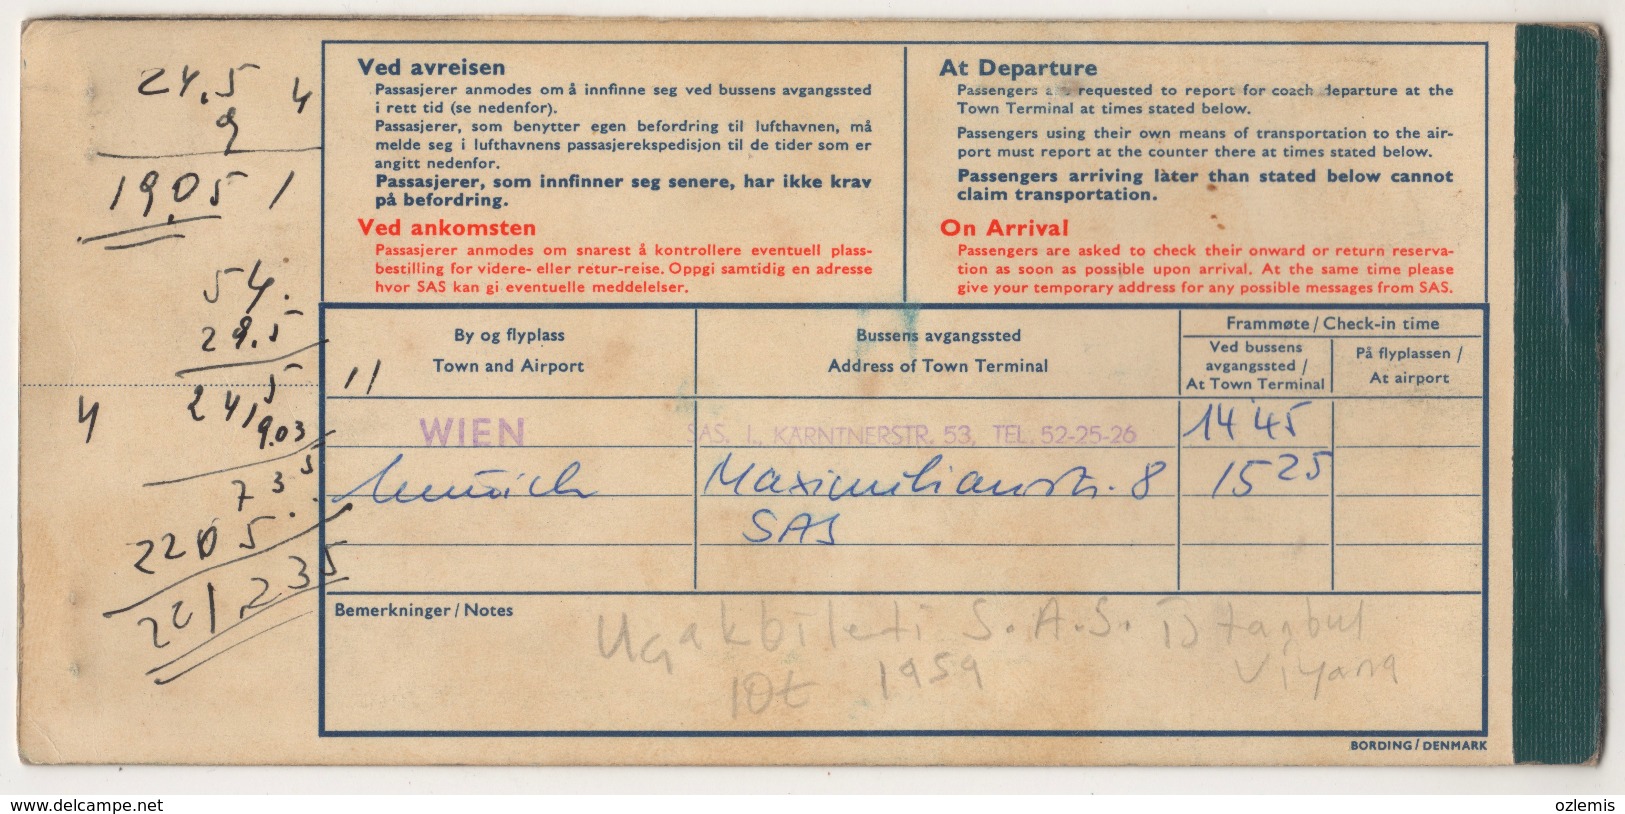 24.5 4
9
1905 /
54.
29.5
5
4 2419.03
7 35
2205.
221.235
Ved avreisen
Passasjerer anmodes om å innfinne seg ved bussens avgangssted
i rett tid (se nedenfor).
Passasjerer, som benytter egen befordring til lufthavnen, må
melde seg i lufthavnens passasjerekspedisjon til de tider som er
angitt nedenfor.
Passasjerer, som innfinner seg senere, har ikke krav
på befordring.
Ved ankomsten
Passasjerer anmodes om snarest å kontrollere eventuell plass-
bestilling for videre- eller retur-reise. Oppgi samtidig en adresse
hvor SAS kan gi eventuelle meddelelser.
At Departure
Passengers are requested to report for coach departure at the
Town Terminal at times stated below.
Passengers using their own means of transportation to the air-
port must report at the counter there at times stated below.
Passengers arriving later than stated below cannot
claim transportation.
On Arrival
Passengers are asked to check their onward or return reserva-
tion as soon as possible upon arrival. At the same time please
give your temporary address for any possible messages from SAS.
By og flyplass
Town and Airport
Bussens avgangssted
Address of Town Terminal
Frammøte / Check-in time
Ved bussens
avgangssted /
At Town Terminal
På flyplassen /
At airport
11
WIEN SAS. I., KÄRNTNERSTR. 53, TEL. 52-25-26 14 45
Munich Maximilianstr. 8 15 25
SAS
Bemerkninger / Notes
Uçakbileti S.A.S. İstanbul
10t 1959 Viyana
BORDING / DENMARK
www.delcampe.net
ozlemis